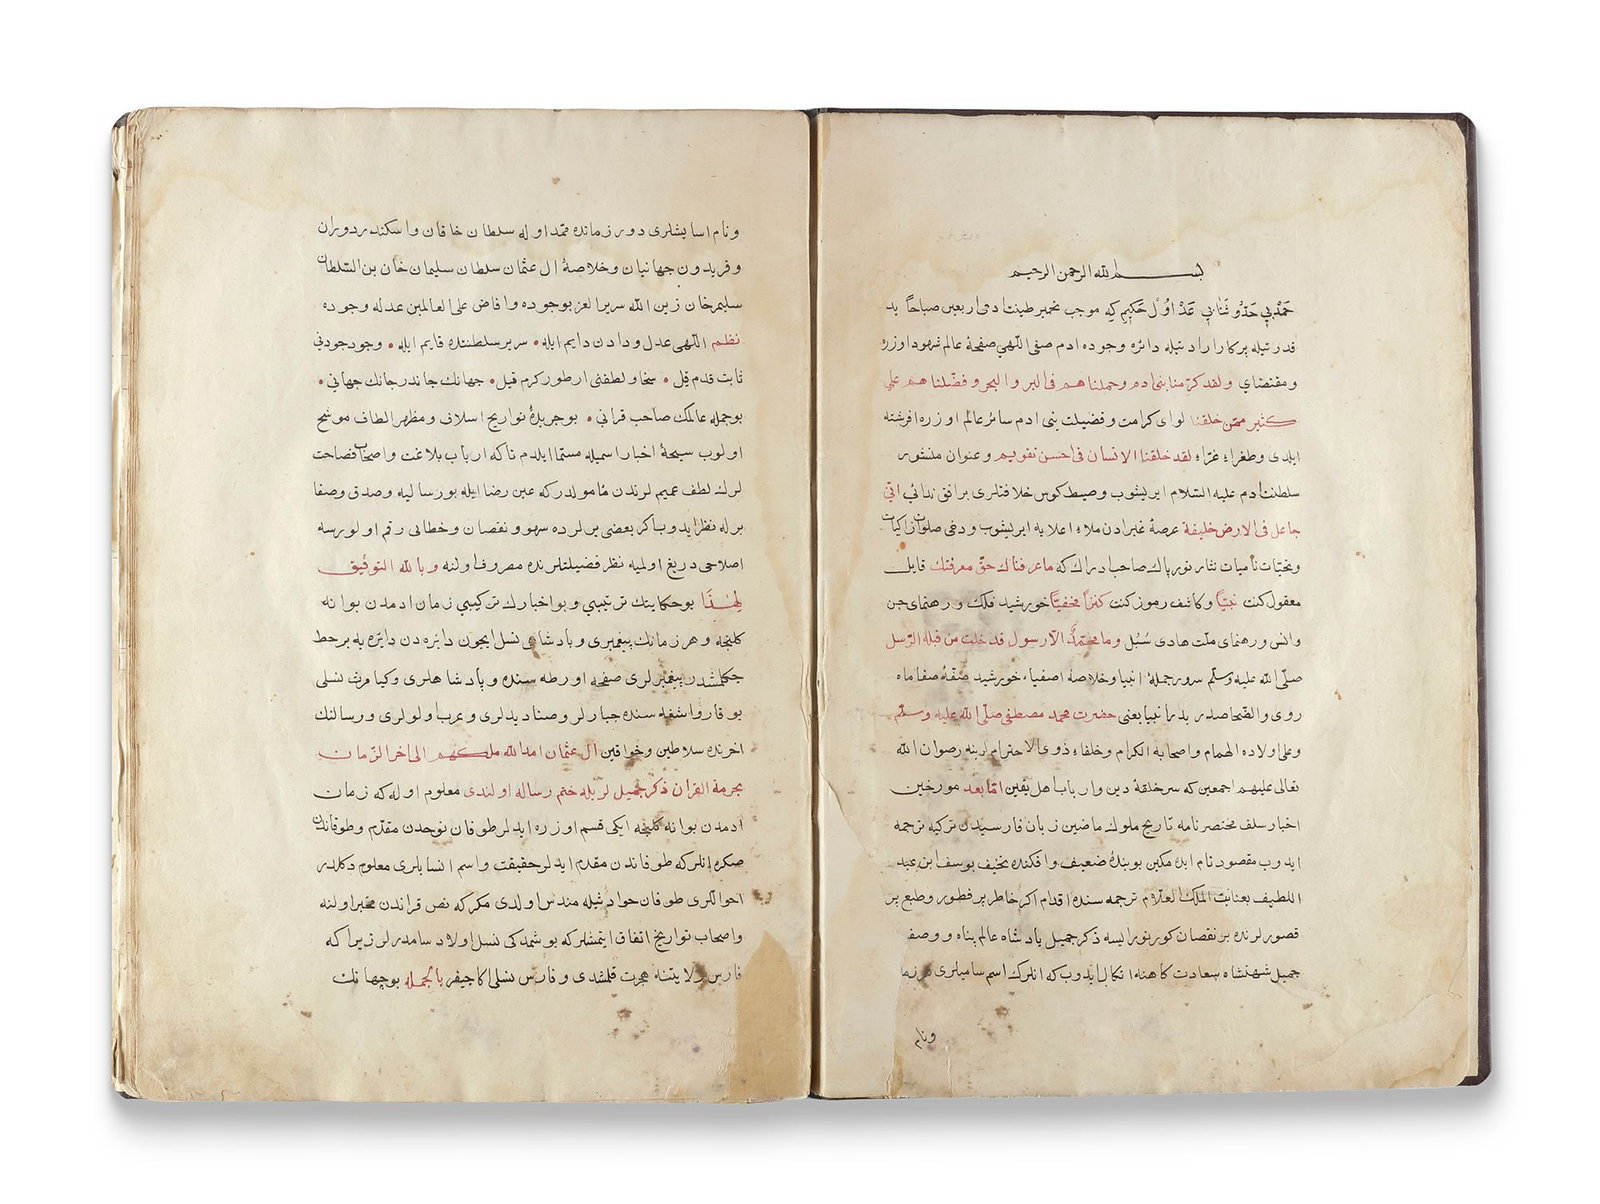 بسم الله الرحمن الرحيم
حمد بي حد و ثنا بي عد اول حكيم كه موجب تخمير طينت ادمى اربعين صباحا يد
قدرتيله پركار ارادتيله دائره وجوده ادم صفى اللهى صفحه عالم شهود اوزره
و مقتضاي ولقد كرمنا بنى ادم وحملناهم فى البر والبحر وفضلناهم على
كثير ممن خلقنا لواى كرامت وفضيلت بنى ادم سائر عالم اوزره افرشته
ايلدى وطغراء غراء لقد خلقنا الانسان فى احسن تقويم وعنوان منشور
سلطنت ادم عليه السلام ايريشوب وصيط كوس خلافتلرى براق ندائى انى
جاعل فى الارض خليفة عرصه غبرادن ملاء اعلايه ايريشوب ودخى صلوات زاكيات
وتحيات ناميات نثار نور پاك صاحب ادراك كه ماعرفناك حق معرفتك قايل
معقول كنت نبيا وكاشف رموز كنت كنزا مخفيا خورشيد فلك و رهنماى جن
وانس و رهنماى ملت هادى سبل وما محمد الا رسول قد خلت من قبله الرسل
صلى الله عليه وسلم سرور جمله انبيا وخلاصه اصفياء خورشيد صفه صفا ماه
روى والضحا صدر بدر انبيا يعنى حضرت محمد مصطفى صلى الله عليه وسلم
وعلى اولاده الهمام واصحابه الكرام وخلفاء ذوى الاحترام ارينه رضوان الله
تعالى عليهم اجمعين كه سر حلقه دين وارباب اهل يقين اما بعد مورخين
اخبار سلف مختصرنامه تاريخ ملوك ماضين زبان فارسيدن تركيه ترجمه
ايدوب مقصود تام ايده مكين بو بنده ضعيف وافكنده نحيف يوسف ابن عبد
اللطيف بعنايت الملك العلام ترجمه سنده اقدام اكر خاطر پر فطور وطبع پر
قصورلرنده بر نقصان كورنورايسه ذكر جميل پادشاه عالم پناه ووصف
جميل شهنشاه سعادت كاهنه اتكال ايدوب كه انلرك اسم ساميلرى هر زما
ونام
ونام اسايشلرى دور زمانده ممتد اوله سلطان خاقان واسكندر دوران
وفريدون جهانيان وخلاصهٔ ال عثمان سلطان سليمان خان بن السلطان
سليم خان زين الله سرير العز بوجوده وافاض على العالمين عدله وجوده
نظم اللهى عدل ودادن دايم ايله • سرير سلطنتده قايم ايله • وجود جودنى
ثابت قدم قل • سخا ولطفنى ارطور كرم قيل • جهانك جاندر جانك جهانى •
بو جمله عالمك صاحب قرانى • بو جريدهٔ تواريخ اسلاف ومظهر الطاف موشح
اولوب سبحهٔ اخبار اسميله مسما ايلدم تاكه ارباب بلاغت واصحاب فصاحت
لرك لطف عميم لرندن مامولدر كه عين رضا ايله بو رساليه وصدق وصفا
برله نظر ايدوب اكر بعضى يرلرده سهو ونقصان وخطائى رقم اولورسه
اصلاحى دريغ اولميه نظر فضيلتلرنده مصروف اولنه وبالله التوفيق
لهذا بو حكايتك ترتيبى وبو اخبارك تركيبى زمان ادمدن بو انه
كلنجه وهر زمانك پيغمبرى وپادشاى نسل ايچون دائره دن دائره يه بر خط
چكلمشدر پيغمبرلرى صفحه اورطه سنده وپادشاهلرى وكيامرث نسلى
يوقاروا شفه سنده جبارلر وصناديدلرى وعرب اولولرى ورسالنك
اخرنده سلاطين وخواقين ال عثمان امد الله ملكهم الى اخر الزمان
بحرمة القران ذكر جميللريله ختم رساله اولندى معلوم اوله كه زمان
ادمدن بو انه كلنجه ايكى قسم اوزره ايدلر طوفان نوحدن مقدم وطوفاندن
صكره انلركه طوفاندن مقدم ايدلر حقيقت واسم انسابلرى معلوم دكلدر
احواللرى طوفان حوادثيله مندس اولدى مكر كه نص قراندن مخبر اولنه
واصحاب تواريخ اتفاق ايتمشلر كه بو شمدكى نسل اولاد سامدرلر زيرا كه
فارس ولايتنه هجرت قلشدى وفارس نسلى اكا چيقر بالجمله بو جهانك